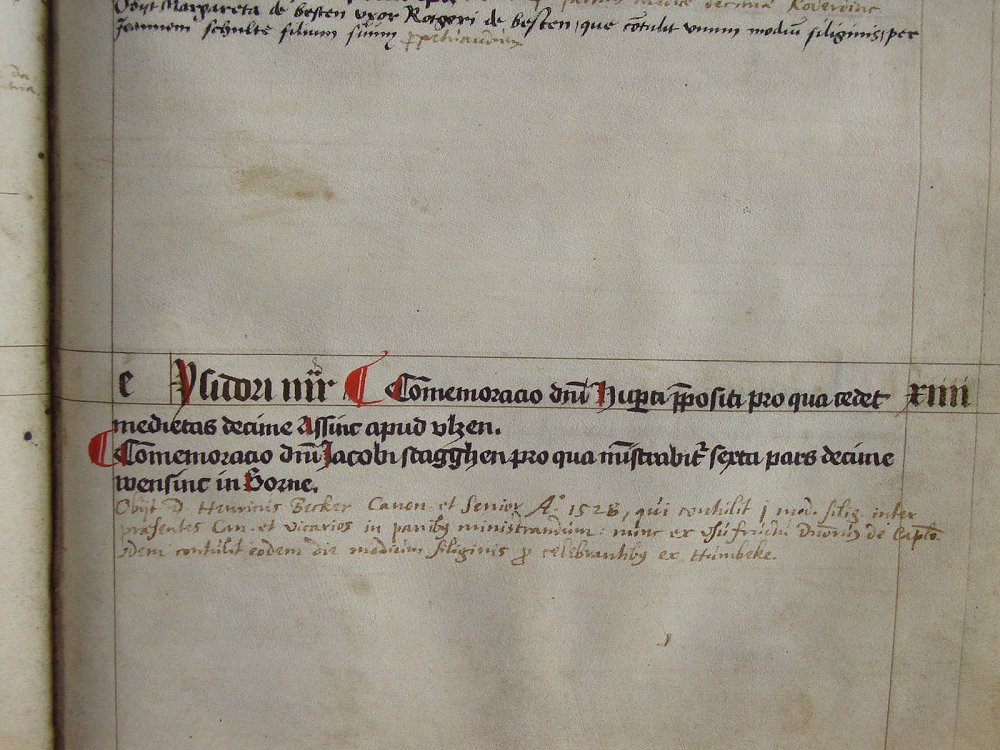 Obijt Margareta de besten vxor Rotgeri de besten, que cōtulit vnum modiū siliginis, per
Joannem schulte filium suum ppetuandum
e Ysidori iiijr Cōmemoracio dn̄i Hup̱ti p̄positi pro qua cedet xiiii
medietas decime Assinc apud vlzen.
Cōmemoracio dn̄i Jacobi scagghen pro qua mīstrabit᷑ sexta pars decime
wensinc in Borne.
Obijt D Henricus Becker Canon. et Senior Aº. 1528, qui contulit j mod. silig. inter
præsentes Can. et vicarios in panibꝫ ministrandum. nunc ex vsufructu Dnorū de Caplo.
Idem contulit eodem die modium siliginis ꝓ celebrantibꝫ ex Humbeke.